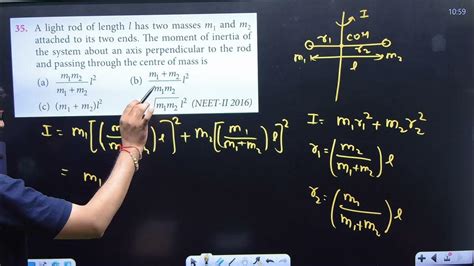 10:59
35. A light rod of length l has two masses m₁ and m₂
attached to its two ends. The moment of inertia of
the system about an axis perpendicular to the rod
and passing through the centre of mass is
(a) m₁m₂/(m₁ + m₂) l² (b) (m₁ + m₂)/(m₁m₂) l²
(c) (m₁ + m₂)l² √(m₁m₂) l² (NEET-II 2016)
I
COM
r₁ r₂
m₁ m₂
l
I = m₁[(m₂/(m₁+m₂)) l]² + m₂[(m₁/(m₁+m₂)) l]²
= m₁
I = m₁r₁² + m₂r₂²
r₁ = (m₂/(m₁+m₂)) l
r₂ = (m₁/(m₁+m₂)) l